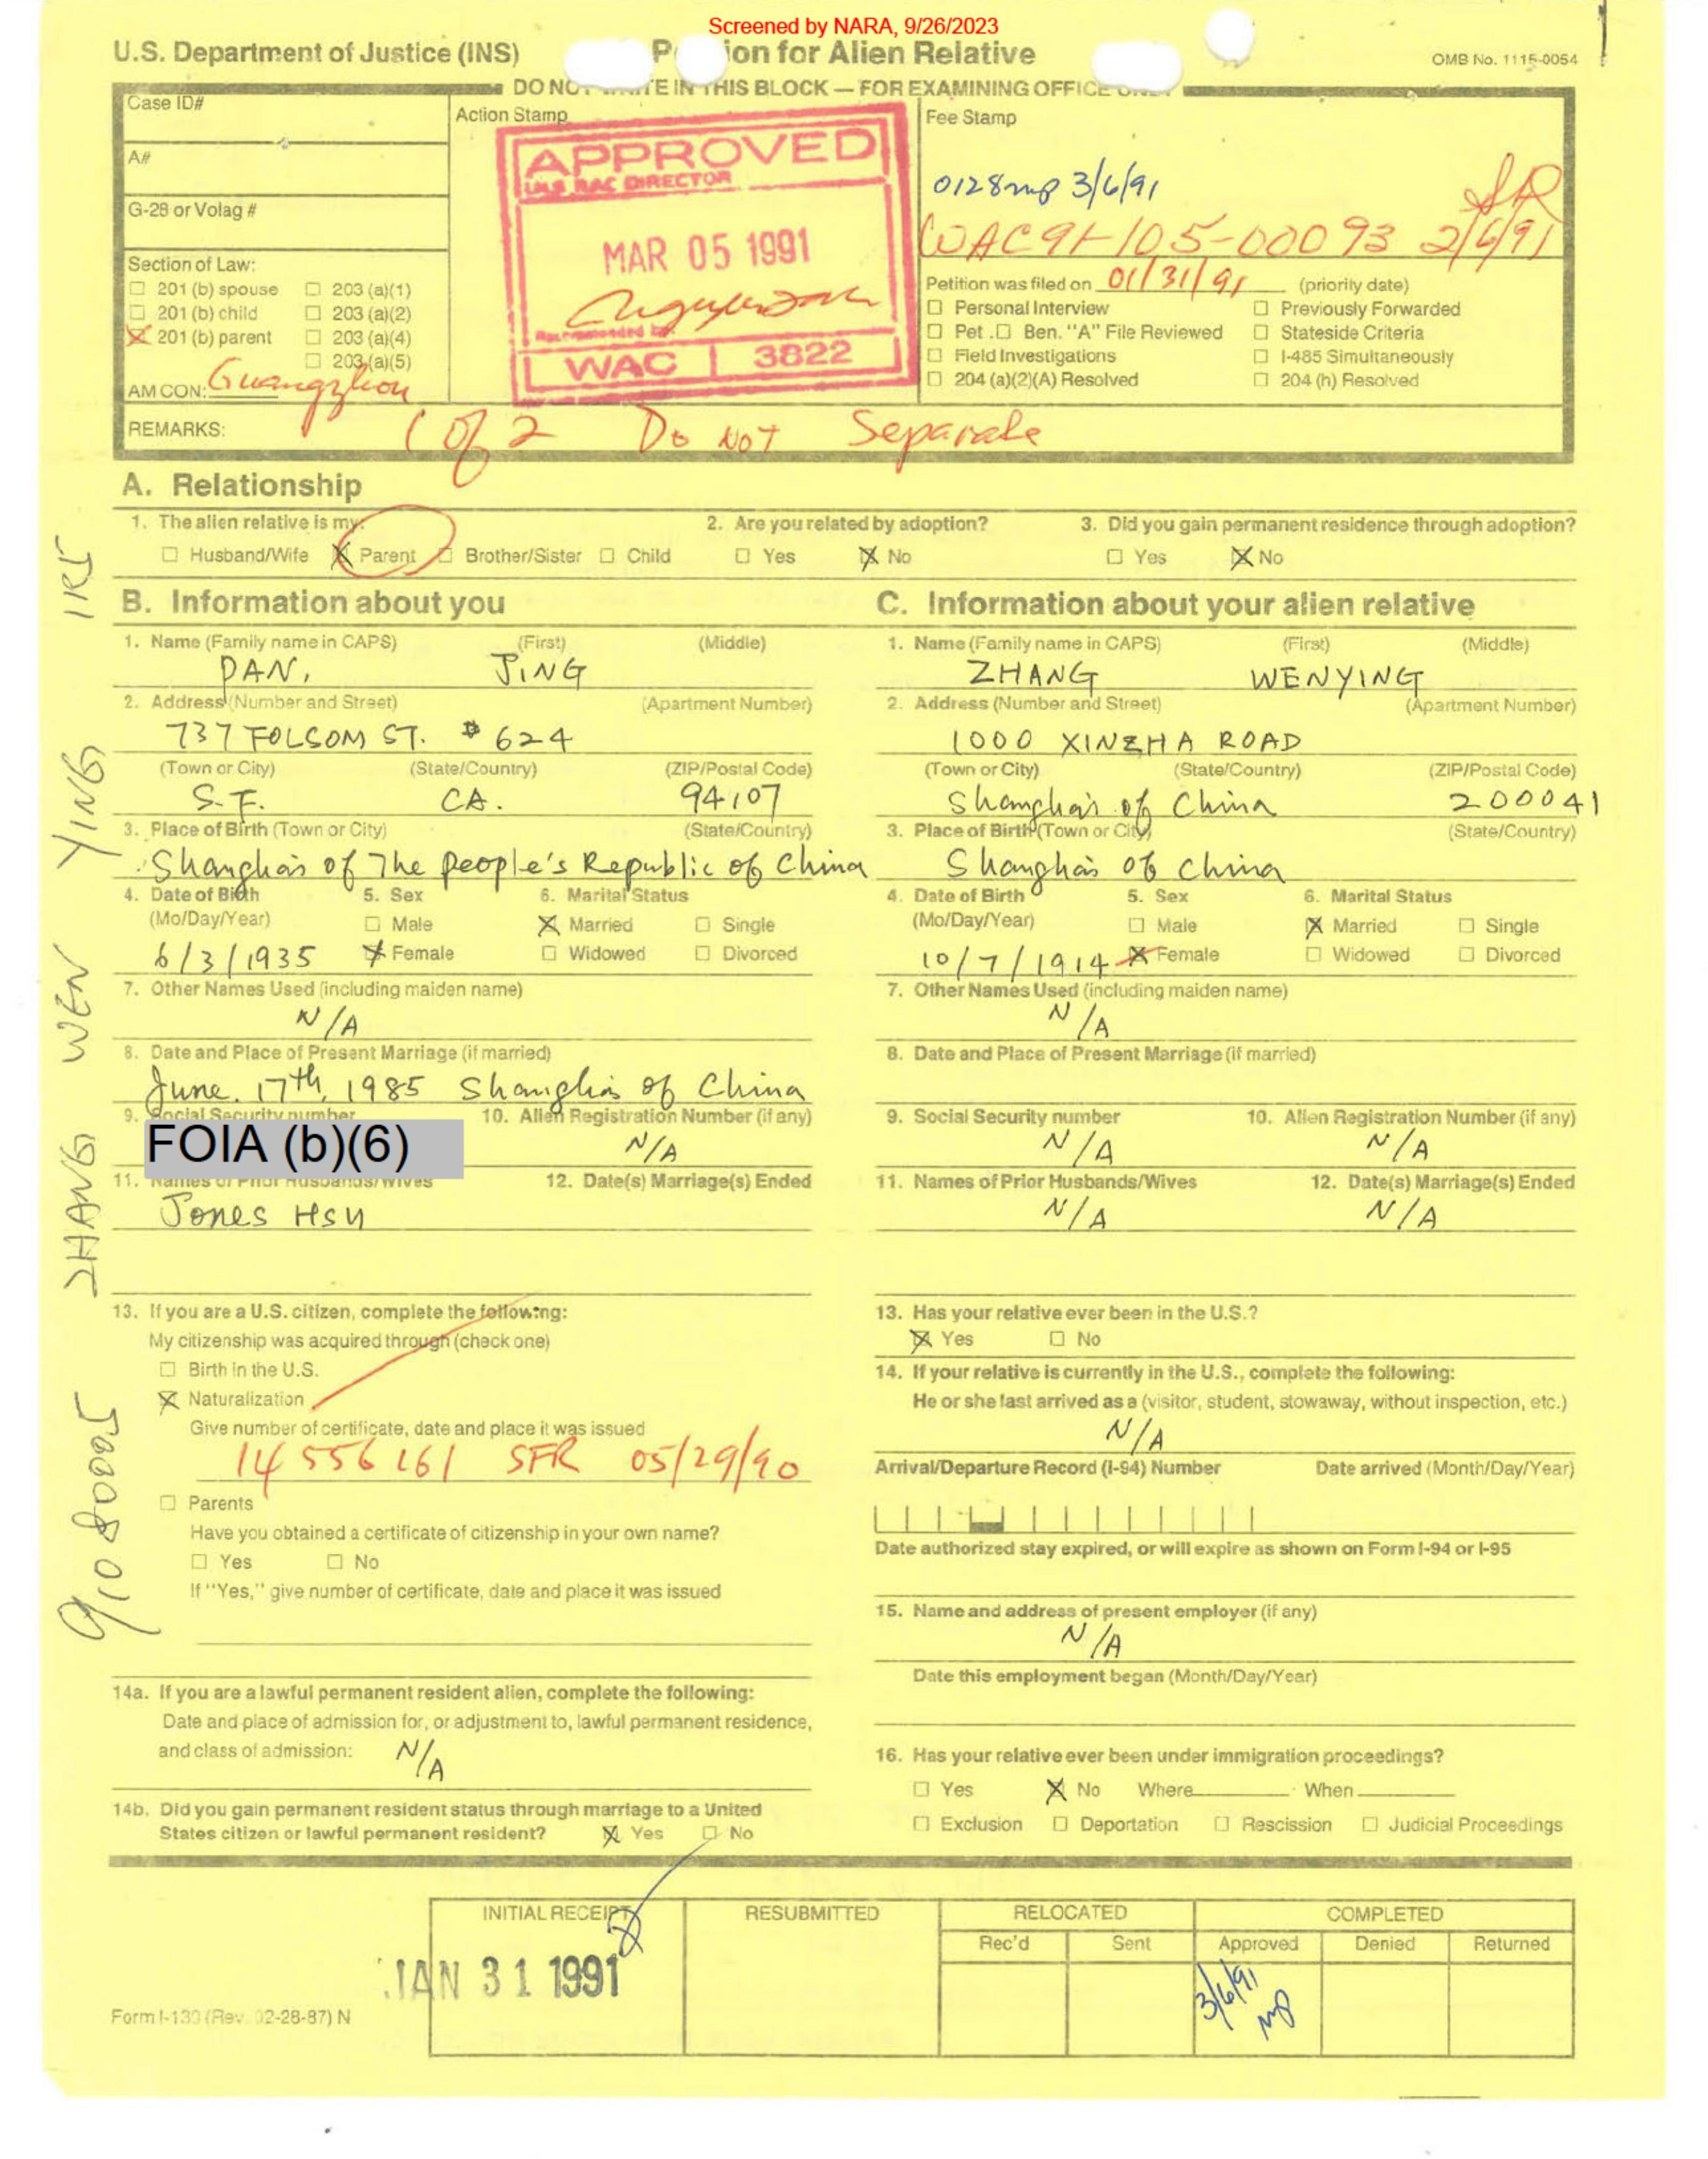 Screened by NARA, 9/26/2023
U.S. Department of Justice (INS) P ion for Alien Relative OMB No. 1115-0054
DO NOT WRITE IN THIS BLOCK — FOR EXAMINING OFFICE ONLY
Case ID#
A#
G-28 or Volag #
Section of Law:
☐ 201 (b) spouse ☐ 203 (a)(1)
☐ 201 (b) child ☐ 203 (a)(2)
☒ 201 (b) parent ☐ 203 (a)(4)
☐ 203 (a)(5)
AM CON: Guangzhou
Action Stamp
APPROVED
DIRECTOR
MAR 05 1991
Recommended by
WAC 3822
Fee Stamp
0128mp 3/6/91
WAC 91-105-00093 2/6/91
Petition was filed on 01/31/91 (priority date)
☐ Personal Interview ☐ Previously Forwarded
☐ Pet. ☐ Ben. "A" File Reviewed ☐ Stateside Criteria
☐ Field Investigations ☐ I-485 Simultaneously
☐ 204 (a)(2)(A) Resolved ☐ 204 (h) Resolved
REMARKS: 1 of 2 Do NOT Separate
A. Relationship
1. The alien relative is my: 2. Are you related by adoption? 3. Did you gain permanent residence through adoption?
☐ Husband/Wife ☒ Parent ☐ Brother/Sister ☐ Child ☐ Yes ☒ No ☐ Yes ☒ No
B. Information about you
1. Name (Family name in CAPS) (First) (Middle)
PAN, JING
2. Address (Number and Street) (Apartment Number)
737 FOLSOM ST. # 624
(Town or City) (State/Country) (ZIP/Postal Code)
S.F. CA. 94107
3. Place of Birth (Town or City) (State/Country)
Shanghai of The people's Republic of China
4. Date of Birth 5. Sex 6. Marital Status
(Mo/Day/Year) ☐ Male ☒ Married ☐ Single
6/3/1935 ☒ Female ☐ Widowed ☐ Divorced
7. Other Names Used (including maiden name)
N/A
8. Date and Place of Present Marriage (if married)
June. 17th, 1985 Shanghai of China
9. Social Security number 10. Alien Registration Number (if any)
FOIA (b)(6) N/A
11. Names of Prior Husbands/Wives 12. Date(s) Marriage(s) Ended
Jones Hsu
13. If you are a U.S. citizen, complete the following:
My citizenship was acquired through (check one)
☐ Birth in the U.S.
☒ Naturalization
Give number of certificate, date and place it was issued
14 556 161 SFR 05/29/90
☐ Parents
Have you obtained a certificate of citizenship in your own name?
☐ Yes ☐ No
If "Yes," give number of certificate, date and place it was issued
14a. If you are a lawful permanent resident alien, complete the following:
Date and place of admission for, or adjustment to, lawful permanent residence,
and class of admission: N/A
14b. Did you gain permanent resident status through marriage to a United
States citizen or lawful permanent resident? ☒ Yes ☐ No
C. Information about your alien relative
1. Name (Family name in CAPS) (First) (Middle)
ZHANG WENYING
2. Address (Number and Street) (Apartment Number)
1000 XINZHA ROAD
(Town or City) (State/Country) (ZIP/Postal Code)
Shanghai of China 200041
3. Place of Birth (Town or City) (State/Country)
Shanghai of China
4. Date of Birth 5. Sex 6. Marital Status
(Mo/Day/Year) ☐ Male ☒ Married ☐ Single
10/7/1914 ☒ Female ☐ Widowed ☐ Divorced
7. Other Names Used (including maiden name)
N/A
8. Date and Place of Present Marriage (if married)
9. Social Security number 10. Alien Registration Number (if any)
N/A N/A
11. Names of Prior Husbands/Wives 12. Date(s) Marriage(s) Ended
N/A N/A
13. Has your relative ever been in the U.S.?
☒ Yes ☐ No
14. If your relative is currently in the U.S., complete the following:
He or she last arrived as a (visitor, student, stowaway, without inspection, etc.)
N/A
Arrival/Departure Record (I-94) Number Date arrived (Month/Day/Year)
Date authorized stay expired, or will expire as shown on Form I-94 or I-95
15. Name and address of present employer (if any)
N/A
Date this employment began (Month/Day/Year)
16. Has your relative ever been under immigration proceedings?
☐ Yes ☒ No Where When
☐ Exclusion ☐ Deportation ☐ Rescission ☐ Judicial Proceedings
INITIAL RECEIPT RESUBMITTED RELOCATED COMPLETED
Rec'd Sent Approved Denied Returned
JAN 31 1991 3/6/91 mp
Form I-130 (Rev. 02-28-87) N
91080005 ZHANG WEN YING IR5